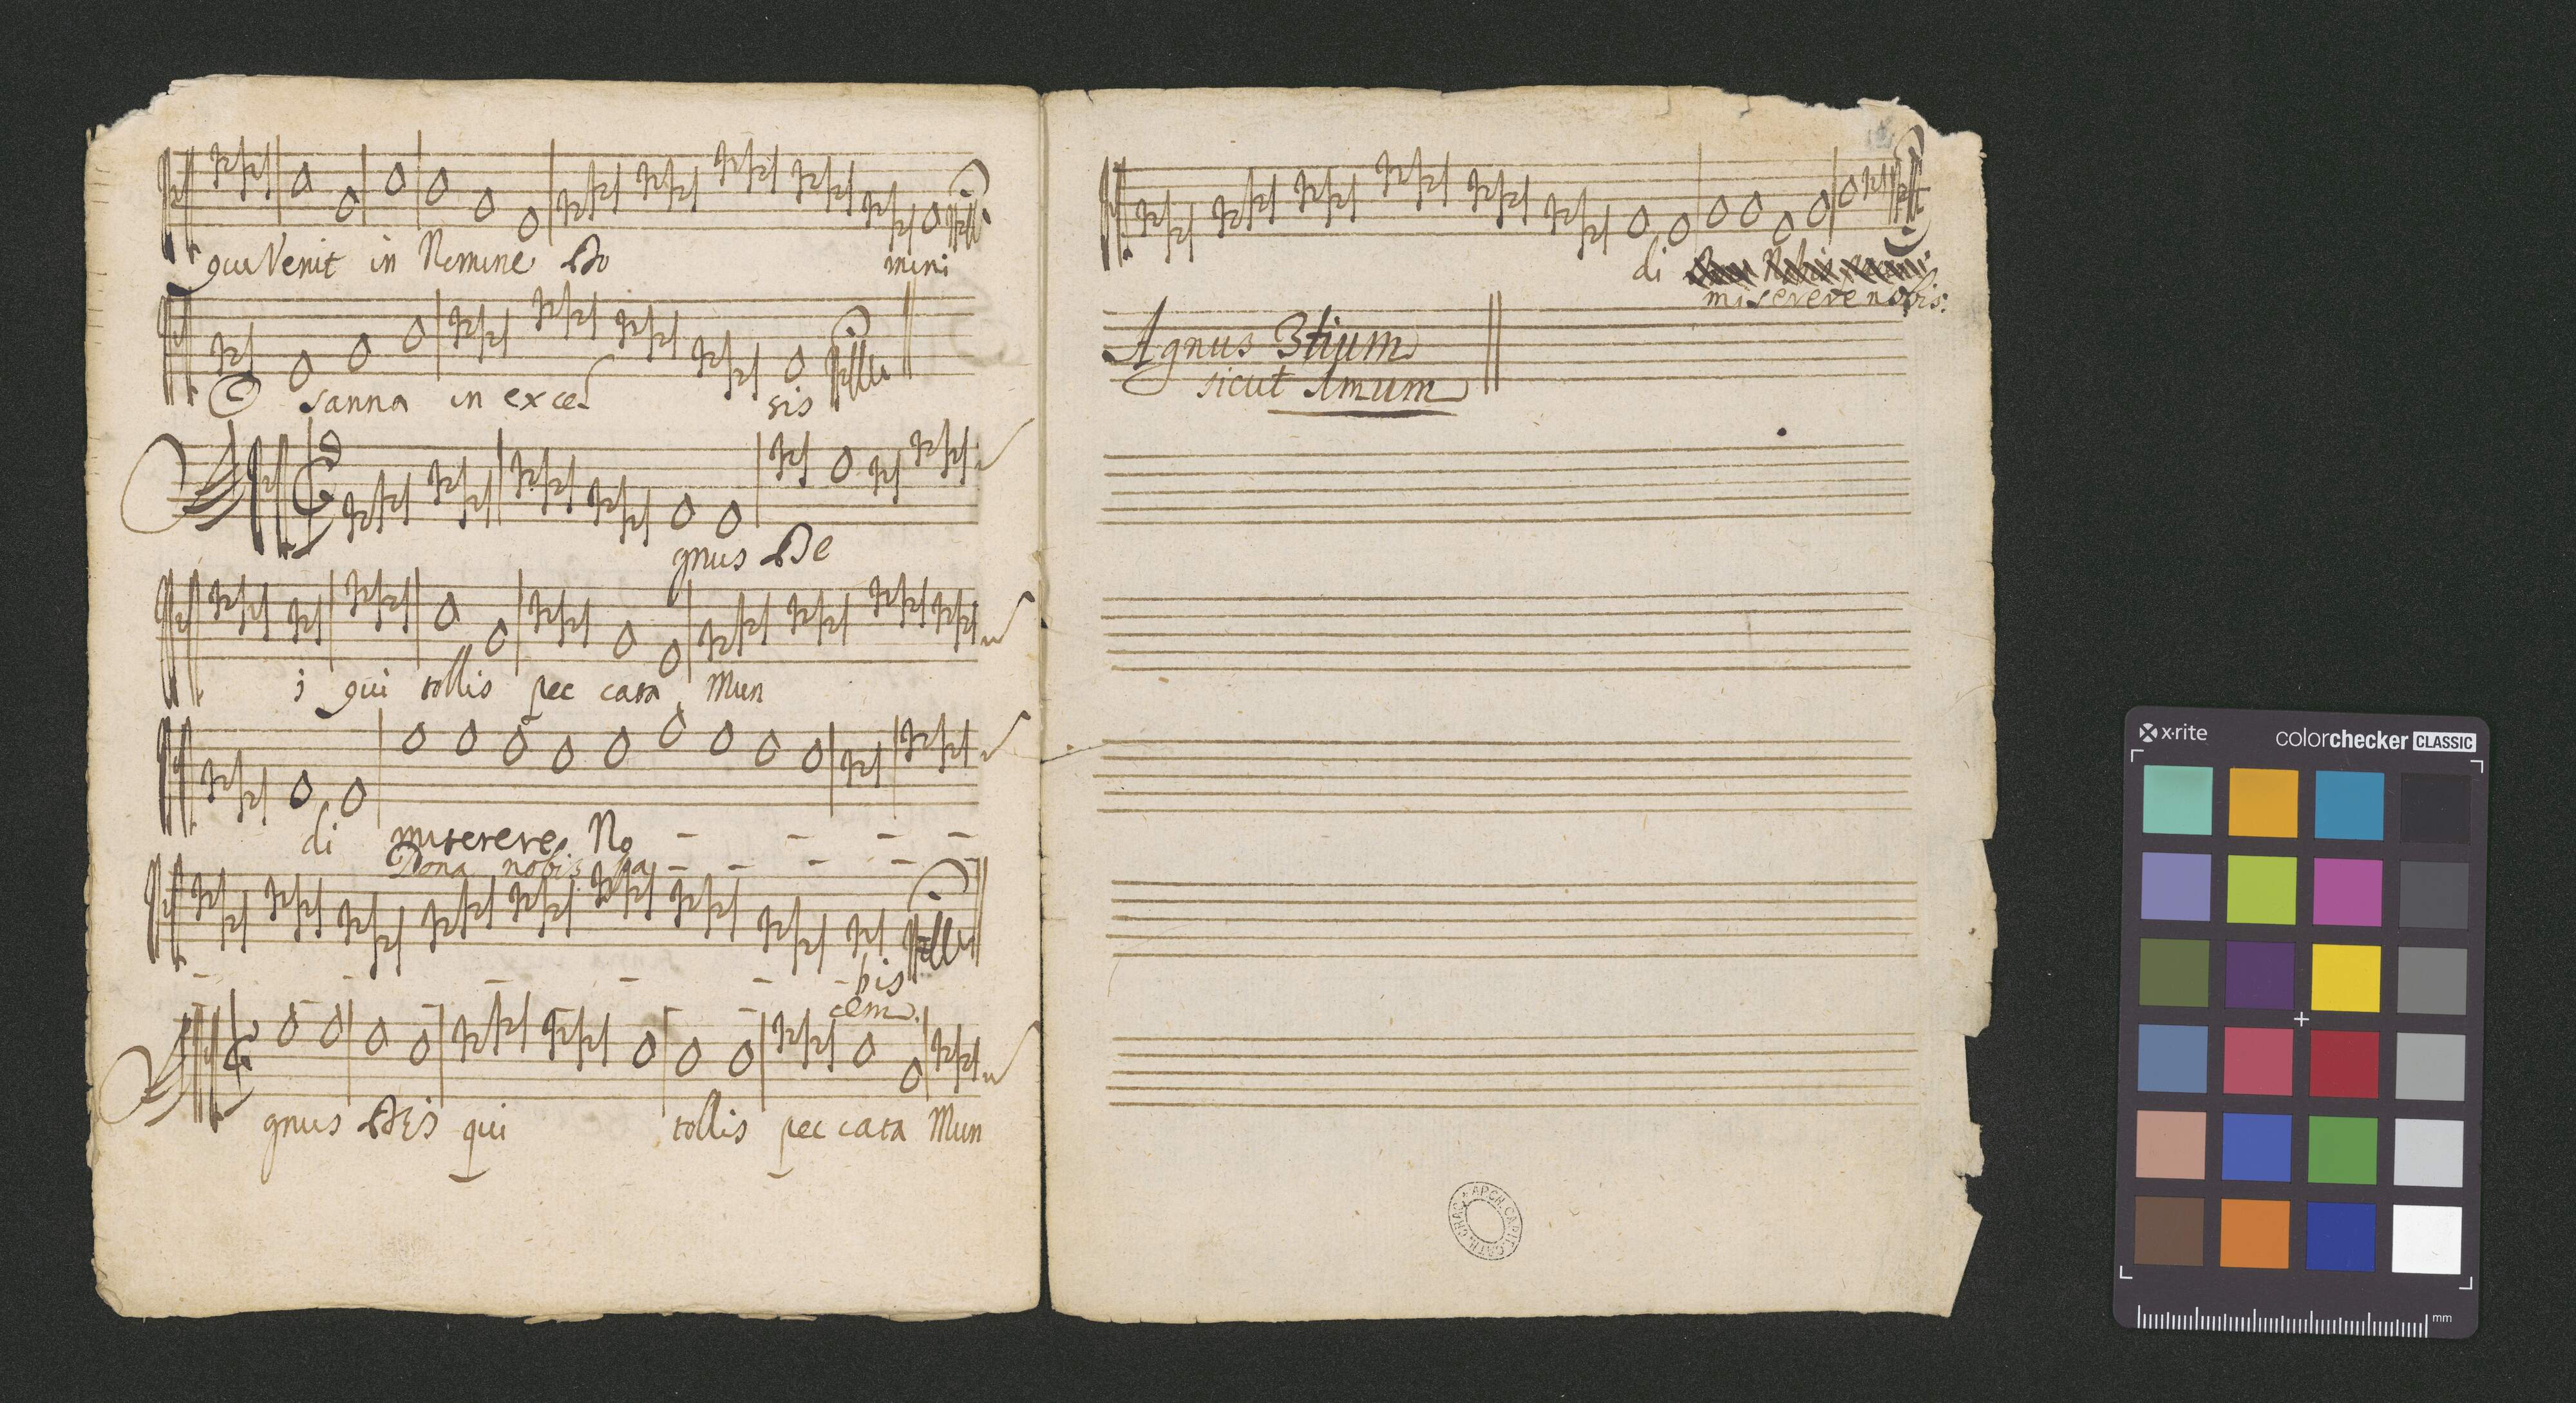 qui Venit in Nomine Do mini
O sanna in excel sis
gnus De
i qui tollis pec cata Mun
di miserere No
Dona nobis pa
bis
cem.
gnus DEi qui tollis pec cata Mun
di
miserere nobis:
Agnus 3tium
sicut 1mum
APCH. CAPIT. CATH. CRAC.
x·rite
colorchecker CLASSIC
mm